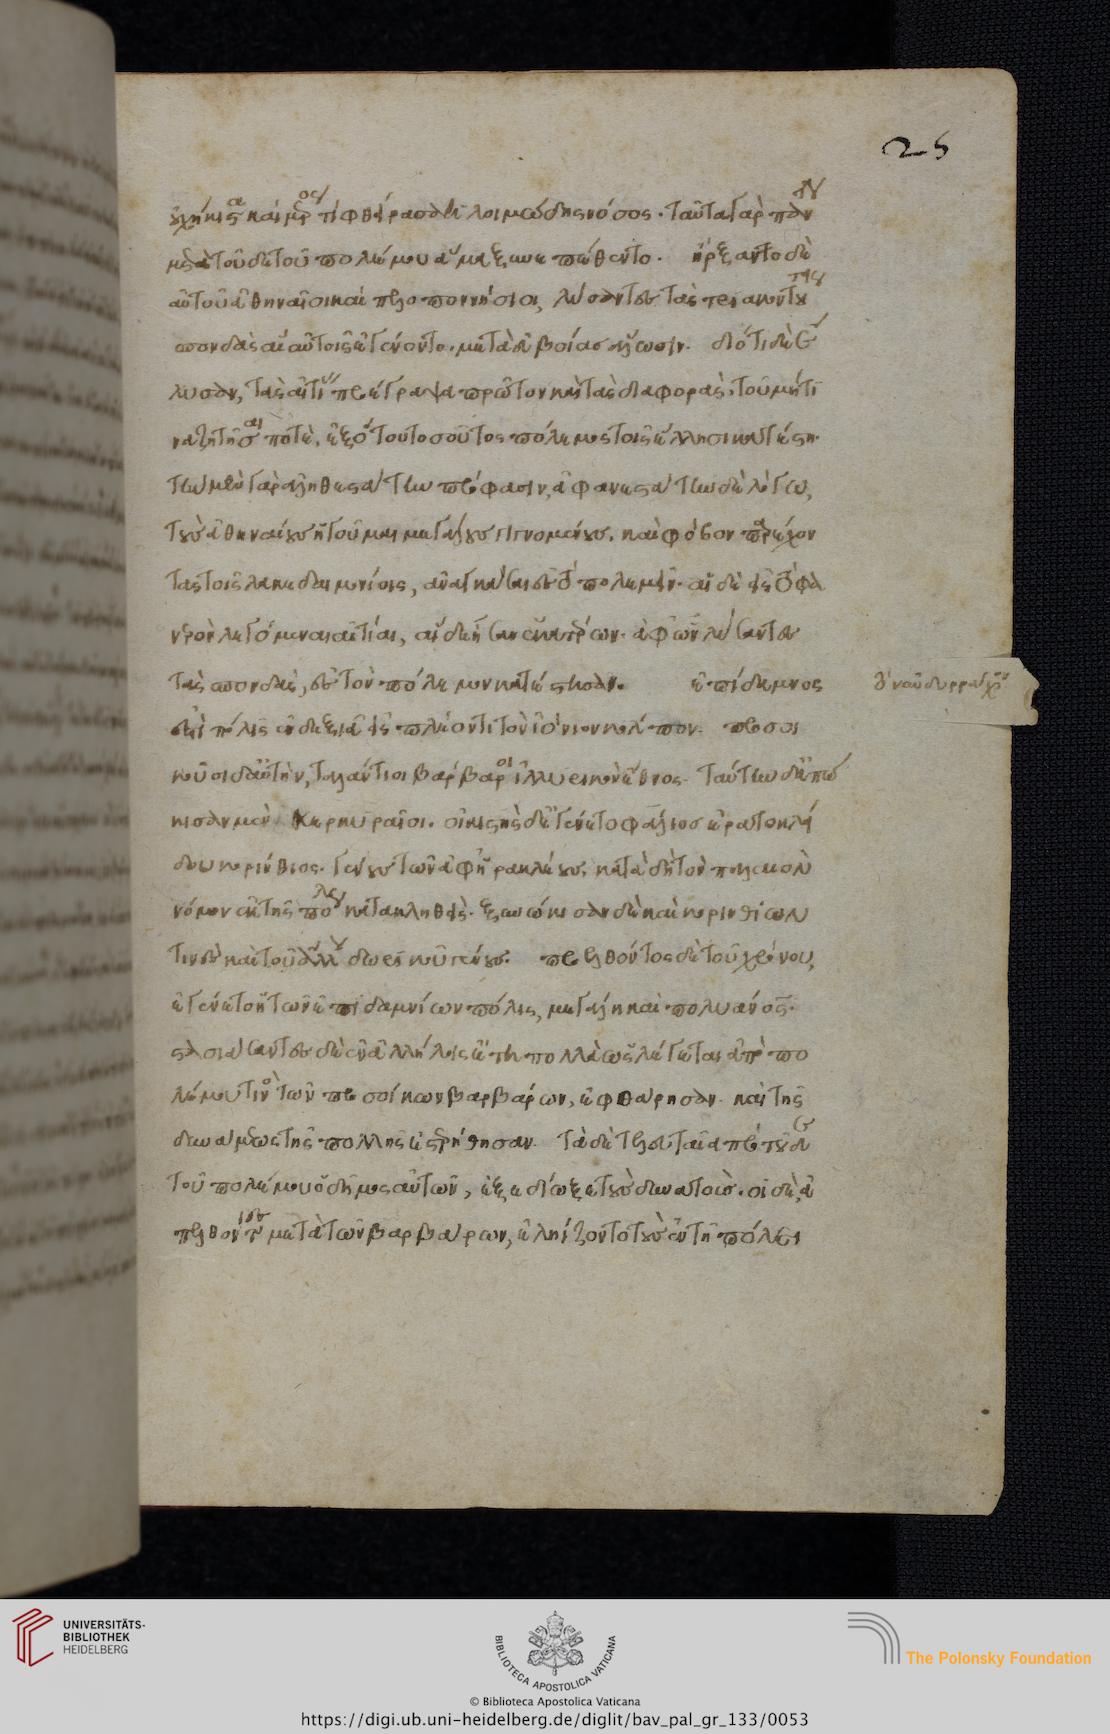 25
οὐχ ἥκιστα καὶ μέρος τι φθείρασα ἡ λοιμώδης νόσος· ταῦτα γὰρ πάντα
μετὰ τοῦδε τοῦ πολέμου ἅμα ξυνεπέθεντο· ἤρξαντο δὲ
αὐτοῦ ἀθηναῖοι καὶ πελοποννήσιοι, λύσαντες τὰς τριακοντούτεις
σπονδὰς αἳ αὐτοῖς ἐγένοντο μετὰ εὐβοίας ἅλωσιν· διότι δὲ ἔ
λυσαν, τὰς αἰτίας προέγραψα πρῶτον καὶ τὰς διαφορὰς, τοῦ μή τι
να ζητῆσαι ποτὲ, ἐξ ὅτου τοσοῦτος πόλεμος τοῖς ἕλλησι κατέστη·
τὴν μὲν γὰρ ἀληθεστάτην πρόφασιν, ἀφανεστάτην δὲ λόγω,
τοὺς ἀθηναίους ἡγοῦμαι μεγάλους γιγνομένους, καὶ φόβον παρέχον
τας τοῖς λακεδαιμονίοις, ἀναγκάσαι ἐς τὸ πολεμεῖν· αἱ δὲ ἐς τὸ φα
νερὸν λεγόμεναι αἰτίαι, αἵδε ἦσαν ἑκατέρων· ἀφ ὧν λύσαντες
τὰς σπονδὰς, ἐς τὸν πόλεμον κατέστησαν· ἐπίδαμνος
ἐστὶ πόλις ἐν δεξιᾶ ἐς πλέοντι τὸν ἰόνιον κόλπον· προσοι
κοῦσι δ αὐτὴν, ταυλάντιοι βάρβαροι ἰλλυρικὸν ἔθνος· ταύτην ἀπώ
κισαν μὲν κερκυραῖοι· οἰκιστὴς δ ἐγένετο φάλιος ἐρατοκλεί
δου κορίνθιος· γένους τῶν ἀφ ἡρακλέους, κατὰ δὴ τὸν παλαιὸν
νόμον ἐκ τῆς μητροπόλεως κατακληθείς· ξυνώκισαν δὲ καὶ κορινθίων
τινες καὶ τοῦ ἄλλου δωρικοῦ γένους· προελθόντος δὲ τοῦ χρόνου,
ἐγένετο ἡ τῶν ἐπιδαμνίων πόλις, μεγάλη καὶ πολυάνθρωπος·
στασιάσαντες δὲ ἐν ἀλλήλοις ἔτη πολλὰ ὡς λέγεται ἀπὸ πο
λέμου τινὸς τῶν προσοίκων βαρβάρων, ἐφθάρησαν· καὶ τῆς
δυνάμεως τῆς πολλῆς ἐστερήθησαν· τὰ δὲ τελευταῖα πρὸ τοῦδε
τοῦ πολέμου ὁ δῆμος αὐτῶν, ἐξεδίωξε τοὺς δυνατοὺς· οἱ δὲ, ἀ
πελθόντες μετὰ τῶν βαρβάρων, ἐληίζοντο τοὺς ἐν τῆ πόλει
UNIVERSITÄTS-
BIBLIOTHEK
HEIDELBERG
BIBLIOTECA APOSTOLICA VATICANA
The Polonsky Foundation
© Biblioteca Apostolica Vaticana
https://digi.ub.uni-heidelberg.de/diglit/bav_pal_gr_133/0053